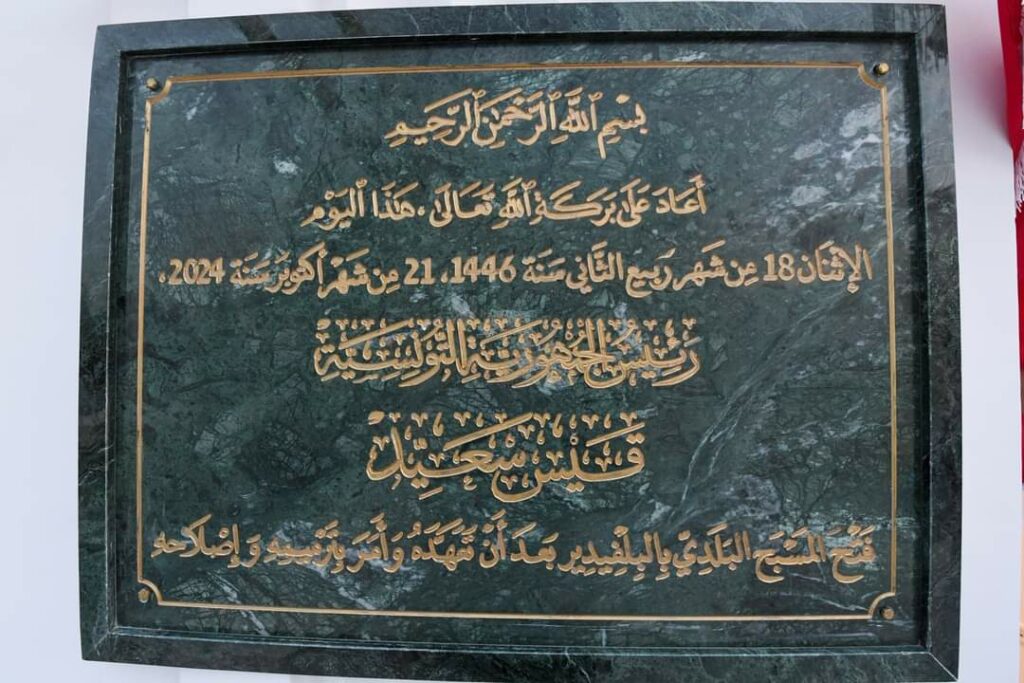 بِسْمِ ٱللَّهِ ٱلرَّحْمَٰنِ ٱلرَّحِيمِ
أَعَادَ عَلَىٰ بَرَكَةِ ٱللَّهِ تَعَالَىٰ، هَٰذَا ٱلْيَوْم
الإِثْنَان 18 مِن شَهر رَبيع الثَّاني سَنَة 1446، 21 مِن شَهْر أُكتوبَر سَنَة 2024،
رَئِيسُ الجُمْهُورِيَّةِ التُّونِسِيَّةِ
قَيْس سَعَيِّدْ
فَتْحَ المَسْبَحِ البَلَدِيّ بِالبِلْفِيدِير بَعدَ أَنْ تَعَهَّدَهُ وَأَمَرَ بِتَرْمِيمِهِ وَإِصْلَاحِهِ